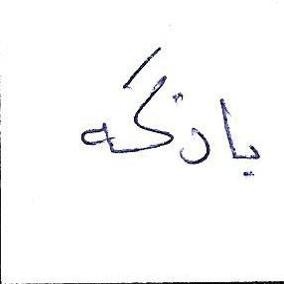 یازگه